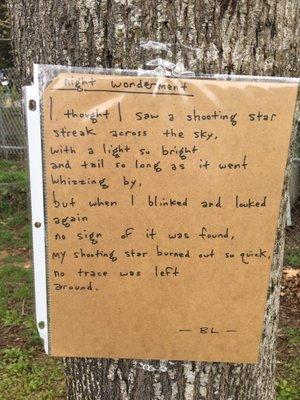 night wonderment
I thought I saw a shooting star
streak across the sky,
with a light so bright
and tail so long as it went
whizzing by,
but when I blinked and looked
again
no sign of it was found,
my shooting star burned out so quick,
no trace was left
around.
— BL —